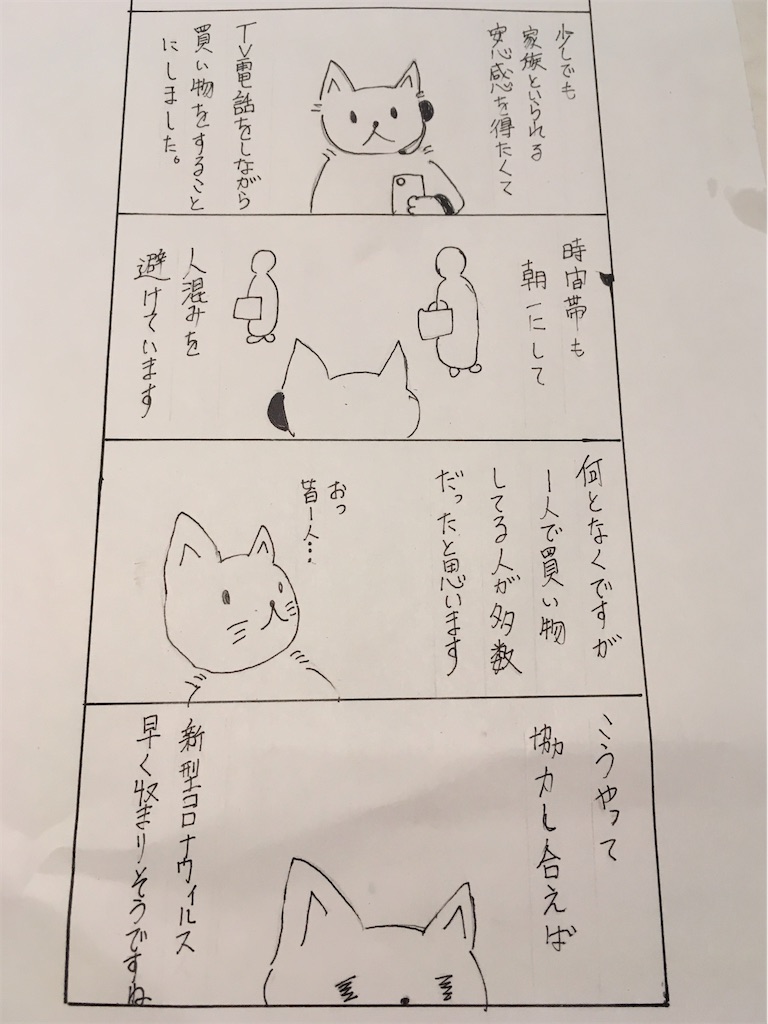 少しでも
家族といられる
安心感を得たくて
TV電話をしながら
買い物をすること
にしました。
時間帯も
朝一にして
人混みを
避けています
何となくですが
1人で買い物
してる人が多数
だったと思います
おっ
皆1人…
こうやって
協力し合えば
新型コロナウィルス
早く収まりそうですね